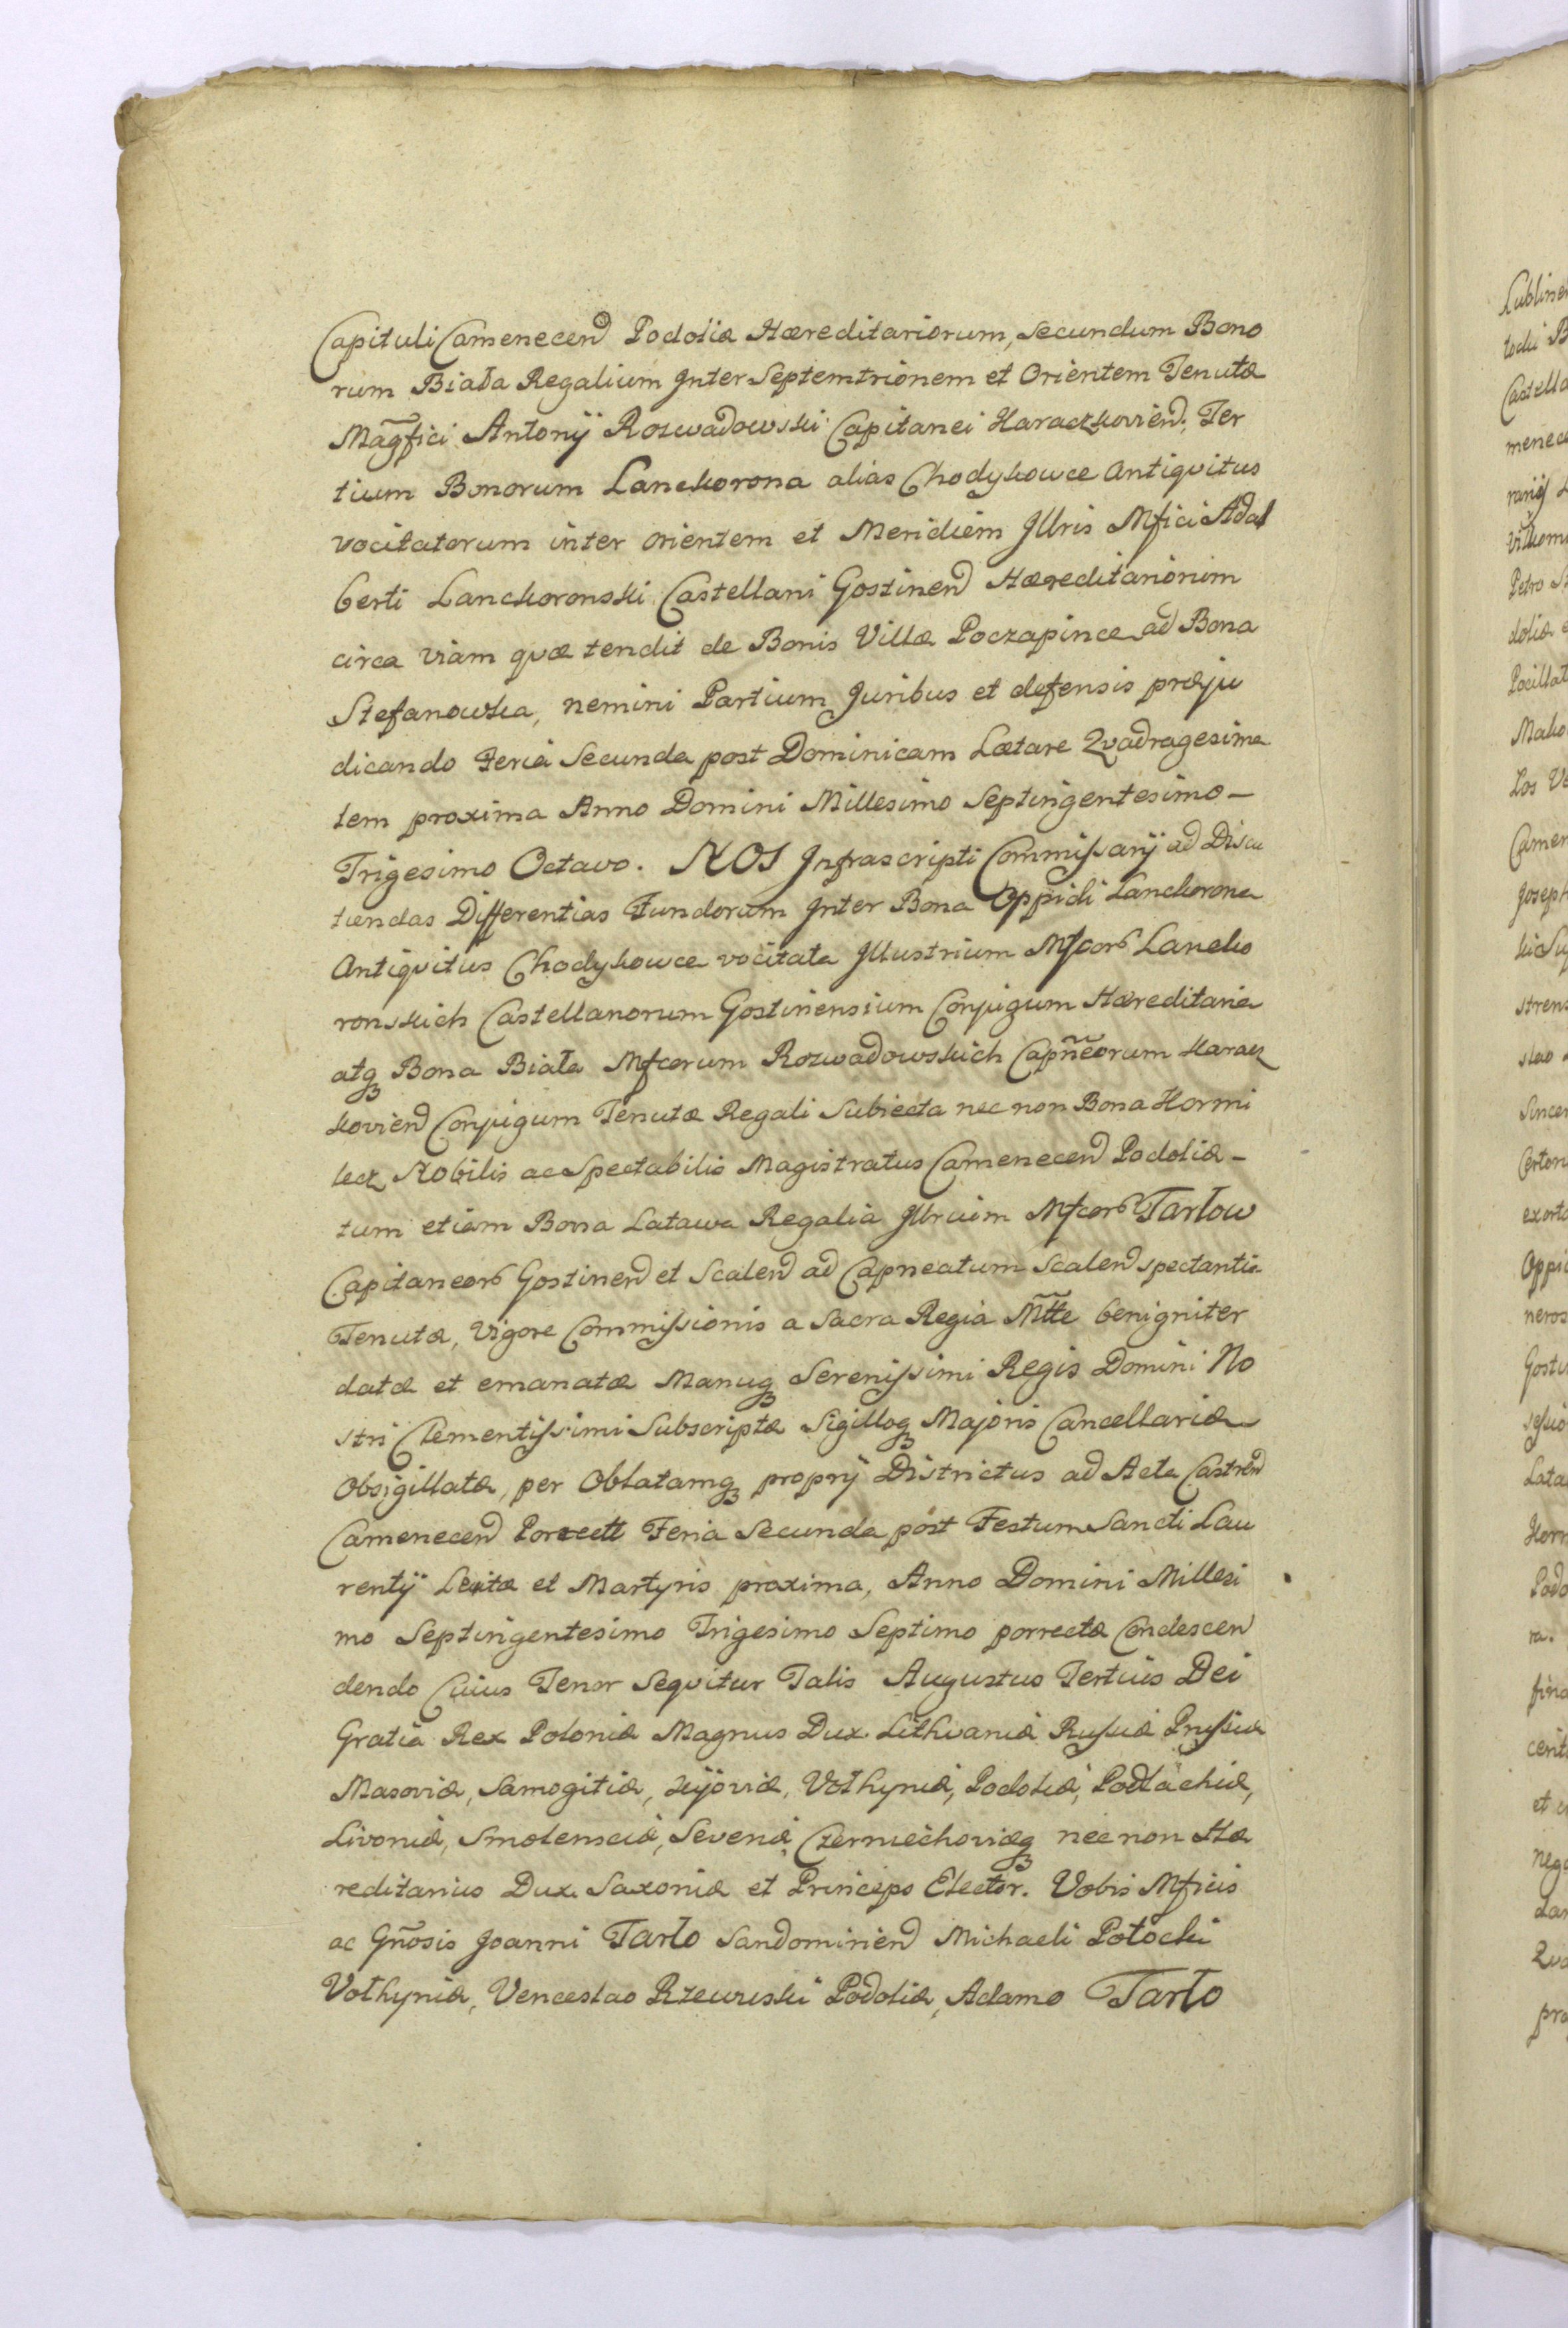 Capituli Camenecen Podoliæ Hæreditariorum, secundum Bono
rum Biała Regalium Inter Septemtrionem et Orientem Tenutæ
Magfici Antonij Rozwadowski Capitanei Haraczkovien. Ter
tium Bonorum Lanckorona alias Chodykowce Antiqvitus
vocitatorum inter orientem et Meridiem Jllris Mfici Adal
berti Lanckoronski Castellani Gostinen Hæreditariorum
circa viam qvæ tendit de Bonis Villæ Poczapince ad Bona
Stefanowka, nemini Partium Juribus et defensis præju
dicando Feria Secunda post Dominicam Lætare Qvadragesima
lem proxima Anno Domini Millesimo Septingentesimo –
Trigesimo Octavo. NOS Jnfrascripti Commissarij ad Discu
tiendas Differentias Fundorum Jnter Bona Oppidi Lanckorona
Antiqvitus Chodykowce vocitata Jllustrium Mfcor Lancko
ronskich Castellanorum Gostinensium Conjugum Hæreditaria
atq Bona Biała Mfcorum Rozwadowskich Capneorum Haracz
kovien Conjugum Tenutæ Regali Subiecta nec non Bona Hormi
lecz Nobilis ac Spectabilis Magistratus Camenecen Podoliæ –
tum etiam Bona Latawa Regalia Jllrium Mfcor Tarłow
Capitaneor Gostinen et Scalen ad Capneatum Scalen spectantia
Tenutæ, Vigore Commissionis a Sacra Regia Mtte benigniter
datæ et emanatæ Manuq Serenissimi Regis Domini No
stri Clementissimi Subscriptæ Sigilloq Majoris Cancellariæ
Obsigillatæ, per Oblatamq proprij Districtus ad Acta Castren
Camenecen Porrectt Feria Secunda post Festum Sancti Lau
rentij Levitæ et Martyris proxima, Anno Domini Millesi
mo Septingentesimo Trigesimo Septimo porrectæ Condescen
dendo Cuius Tenor Seqvitur Talis Augustus Tertius Dei
Gratia Rex Poloniæ Magnus Dux Lithvaniæ Russiæ Prussiæ
Masoviæ, Samogitiæ, Kijoviæ, Vołhyniæ, Podoliæ, Podlachiæ,
Livoniæ, Smolensciæ, Severiæ, Czerniechoviæq nec non Hæ
reditarius Dux Saxoniæ et Princeps Elector. Vobis Mficis
ac Gnosis Joanni Tarło Sandomirien Michaeli Potocki
Vołhyniæ, Venceslao Rzewuski Podoliæ, Adamo Tarło